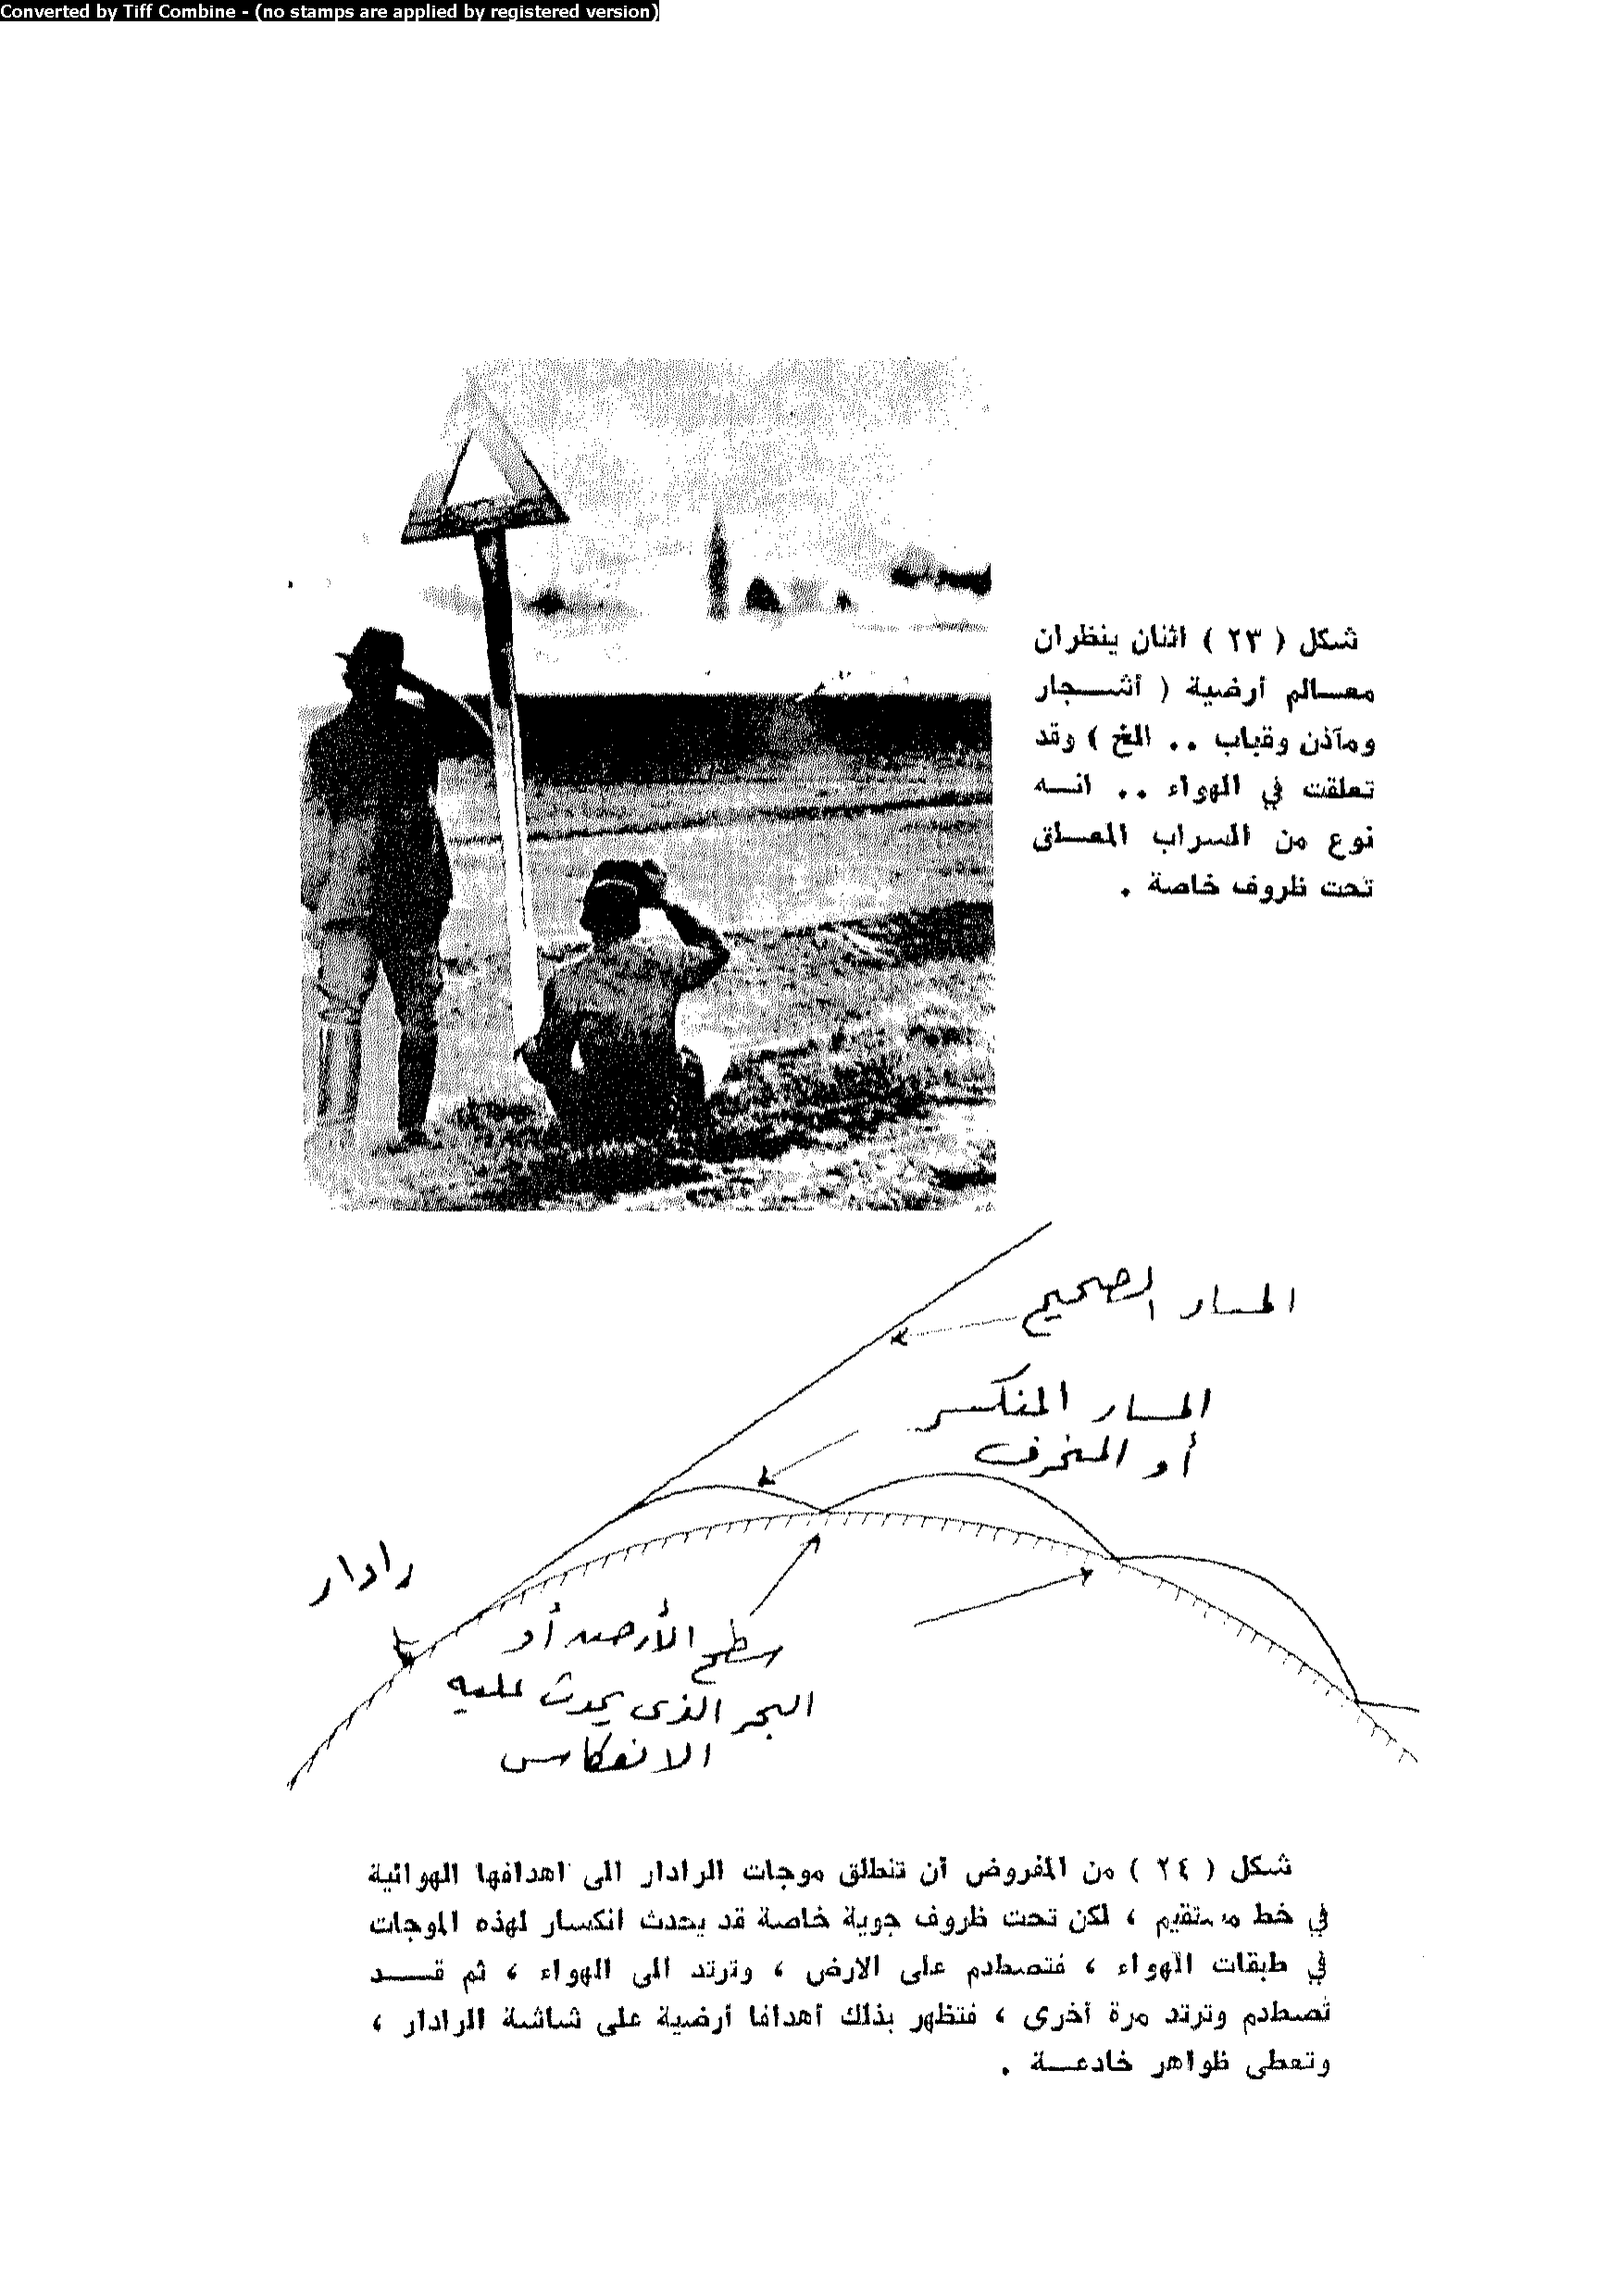 Converted by Tiff Combine - (no stamps are applied by registered version)
شكل ( ٢٣ ) اثنان ينظران
معالم أرضية ( أشجار
ومآذن وقباب .. الخ ) وقد
تعلقت في الهواء .. انه
نوع من السراب المعلق
تحت ظروف خاصة .
المسار الصحيح
المسار المنكسر
أو المنحرف
رادار
سطح الأرض أو
البحر الذى يحدث عليه
الانعكاس
شكل ( ٢٤ ) من المفروض أن تنطلق موجات الرادار الى اهدافها الهوائية
في خط مستقيم ، لكن تحت ظروف جوية خاصة قد يحدث انكسار لهذه الموجات
في طبقات الهواء ، فتصطدم على الارض ، وترتد الى الهواء ، ثم قد
تصطدم وترتد مرة أخرى ، فتظهر بذلك أهدافا أرضية على شاشة الرادار ،
وتعطى ظواهر خادعة .